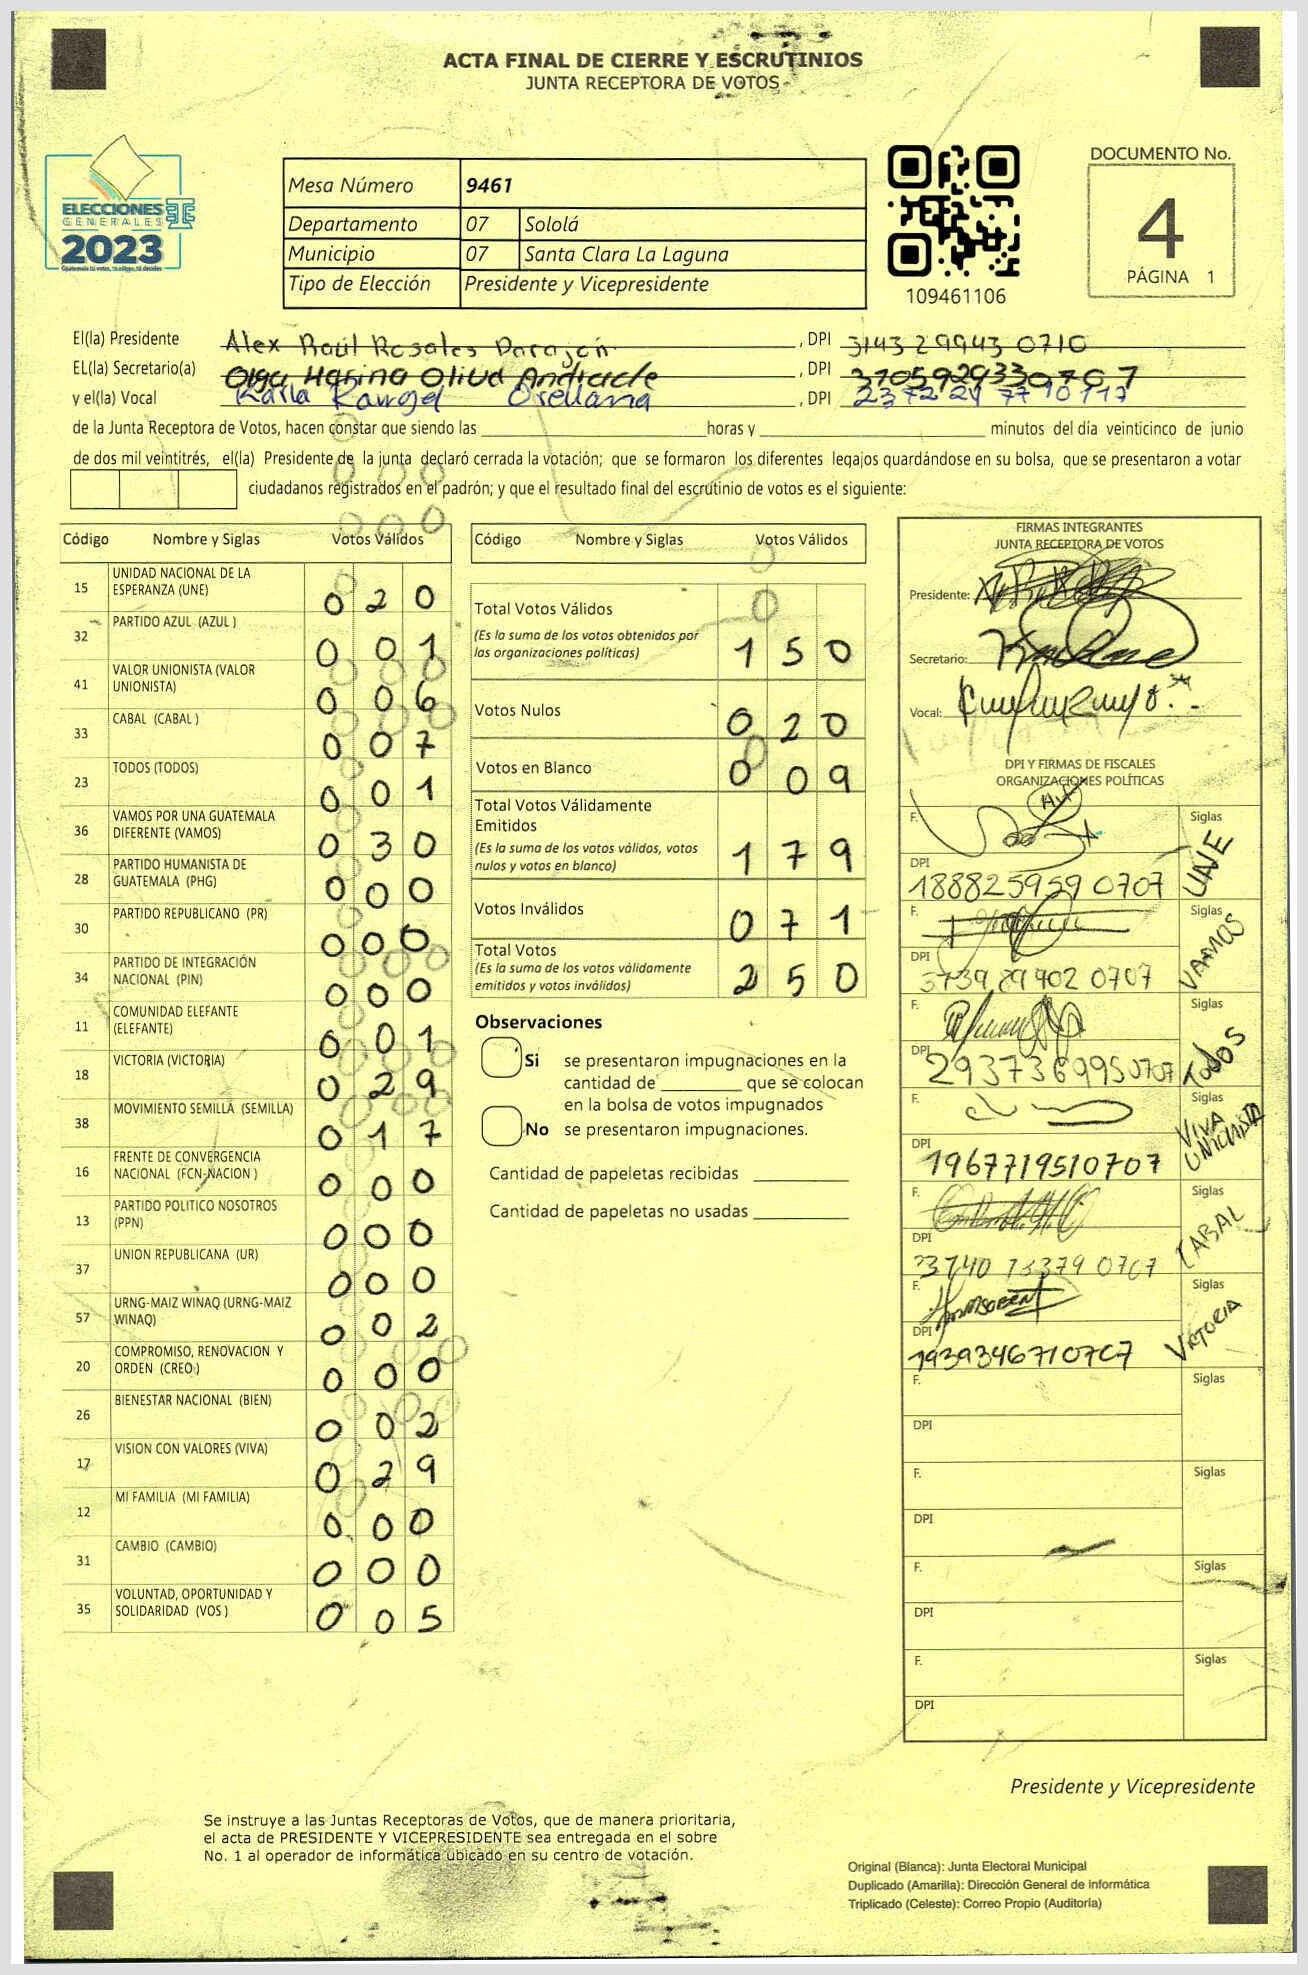 ACTA FINAL DE CIERRE Y ESCRUTINIOS
JUNTA RECEPTORA DE VOTOS
ELECCIONES
GENERALES
2023
Guatemala tú votas, tú eliges, tú decides
TSE
Mesa Número 9461
Departamento 07 Sololá
Municipio 07 Santa Clara La Laguna
Tipo de Elección Presidente y Vicepresidente
109461106
DOCUMENTO No.
4
PÁGINA 1
El(la) Presidente Alex Raúl Rosales , DPI 3143 29943 0710
EL(la) Secretario(a) Olga Marina Andrade , DPI 370592933 0707
y el(la) Vocal Karla Rangel Orellana , DPI
de la Junta Receptora de Votos, hacen constar que siendo las horas y minutos del día veinticinco de junio
de dos mil veintitrés, el(la) Presidente de la junta declaró cerrada la votación; que se formaron los diferentes legajos quardándose en su bolsa, que se presentaron a votar
ciudadanos registrados en el padrón; y que el resultado final del escrutinio de votos es el siguiente:
Código Nombre y Siglas Votos Válidos
15 UNIDAD NACIONAL DE LA ESPERANZA (UNE) 0 2 0
32 PARTIDO AZUL (AZUL ) 0 0 1
41 VALOR UNIONISTA (VALOR UNIONISTA) 0 0 6
33 CABAL (CABAL ) 0 0 7
23 TODOS (TODOS) 0 0 1
36 VAMOS POR UNA GUATEMALA DIFERENTE (VAMOS) 0 3 0
28 PARTIDO HUMANISTA DE GUATEMALA (PHG) 0 0 0
30 PARTIDO REPUBLICANO (PR) 0 0 0
34 PARTIDO DE INTEGRACIÓN NACIONAL (PIN) 0 0 0
11 COMUNIDAD ELEFANTE (ELEFANTE) 0 0 1
18 VICTORIA (VICTORIA) 0 2 9
38 MOVIMIENTO SEMILLA (SEMILLA) 0 1 7
16 FRENTE DE CONVERGENCIA NACIONAL (FCN-NACION ) 0 0 0
13 PARTIDO POLITICO NOSOTROS (PPN) 0 0 0
37 UNION REPUBLICANA (UR) 0 0 0
57 URNG-MAIZ WINAQ (URNG-MAIZ WINAQ) 0 0 2
20 COMPROMISO, RENOVACION Y ORDEN (CREO ) 0 0 0
26 BIENESTAR NACIONAL (BIEN) 0 0 2
17 VISION CON VALORES (VIVA) 0 2 9
12 MI FAMILIA (MI FAMILIA) 0 0 0
31 CAMBIO (CAMBIO) 0 0 0
35 VOLUNTAD, OPORTUNIDAD Y SOLIDARIDAD (VOS ) 0 0 5
Código Nombre y Siglas Votos Válidos
Total Votos Válidos 1 5 0
(Es la suma de los votos obtenidos por
las organizaciones políticas)
Votos Nulos 0 2 0
Votos en Blanco 0 0 9
Total Votos Válidamente
Emitidos 1 7 9
(Es la suma de los votos válidos, votos
nulos y votos en blanco)
Votos Inválidos 0 7 1
Total Votos 2 5 0
(Es la suma de los votos válidamente
emitidos y votos inválidos)
Observaciones
Si se presentaron impugnaciones en la
cantidad de que se colocan
en la bolsa de votos impugnados
No se presentaron impugnaciones.
Cantidad de papeletas recibidas
Cantidad de papeletas no usadas
FIRMAS INTEGRANTES
JUNTA RECEPTORA DE VOTOS
Presidente:
Secretario:
Vocal:
DPI Y FIRMAS DE FISCALES
ORGANIZACIONES POLÍTICAS
F. Siglas UNE
DPI 188825959 0707
F. Siglas VAMOS
DPI 0707
F. Siglas TODOS
DPI 2937369950707
F. Siglas VIVA
DPI 1967719510707
F. Siglas CABAL
DPI 0707
F. Siglas VICTORIA
DPI 1939346710707
F. Siglas
DPI
F. Siglas
DPI
F. Siglas
DPI
F. Siglas
DPI
Presidente y Vicepresidente
Se instruye a las Juntas Receptoras de Votos, que de manera prioritaria,
el acta de PRESIDENTE Y VICEPRESIDENTE sea entregada en el sobre
No. 1 al operador de informática ubicado en su centro de votación.
Original (Blanca): Junta Electoral Municipal
Duplicado (Amarilla): Dirección General de Informática
Triplicado (Celeste): Correo Propio (Auditoría)